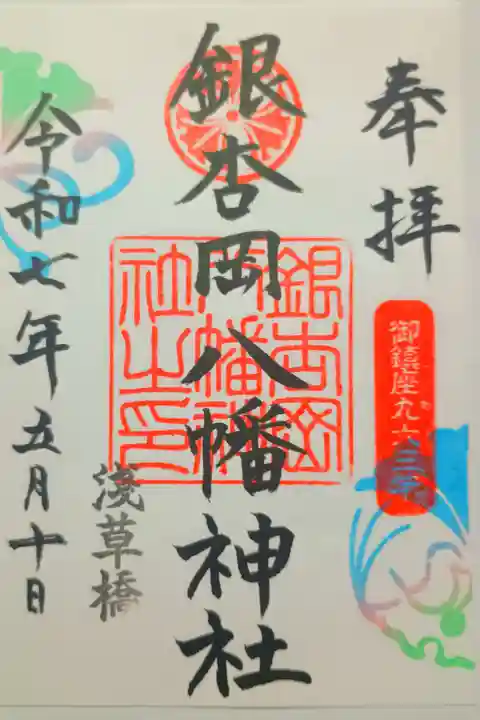 奉拝
御鎮座九六三年
銀杏岡八幡神社
銀杏岡八幡神社之印
淺草橋
令和七年五月十日